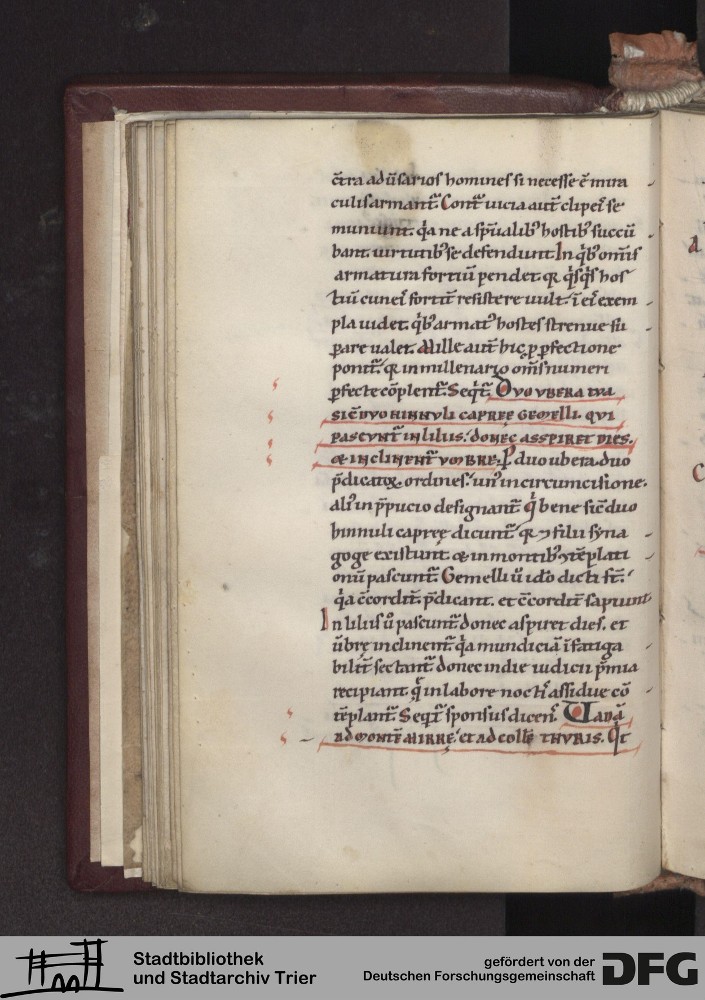 c̄tra adūsarios homines si necesse ē mira
culis armant᷑. Cont᷑ uicia aut̄ clipei se
muniunt. q̇a ne a sp̄ualib᷒ hostib᷒ succū
bant. uirtutib᷒ se defendunt. In q̇b᷒ om̄is
armatura fortiū pendet. qr q̇sq̇s hos
tiū cunei fortit᷑ resistere uult. ī ei᷒ exem
pla uidet. q̇b᷒ armat᷒ hostes strenue su
ꝑare ualet. Mille aut̄ hic ꝓ ꝑfectione
ponit᷑. qr in millenario om̄s numeri
ꝑfecte cōplent᷑. Seqit᷑. DUO UBERA TUA
SIC̄ DUO HINNULI CAPREĘ GEMELLI. QUI
PASCUNT᷑ IN LILIIS. DONEC ASSPIRET DIES.
& INCLINENT᷑ UMBRE. P duo ubera. duo
p̄dicatoꝝ ordines. un᷒ in circumcisione.
ali᷒ in p̄pucio designant᷑. q̇ bene sic̄ duo
hinnuli capreę dicunt᷑. qr ⁊ filii syna
goge existunt. & in montib᷒ ꝯtēplati
onū pascunt᷑. Gemelli ū ido dicti st̄.
q̇a c̄cordit᷑ p̄dicant. et c̄cordit᷑ sapiunt.
In liliis ū pascunt᷑ donec aspiret dies. et
ūbrę inclinent᷑. q̇a mundiciā īfatiga
bilit᷑ sectant᷑. donec in die iudicii p̄mia
recipiant. q̇ in labore nocti᷒ assidue cō
tēplant᷑. Seqit᷑ spons᷒ dicens. VADĀ
AD MONTĒ MIRRĘ. et AD COLLĒ THURIS. Q̇t
Stadtbibliothek
und Stadtarchiv Trier
gefördert von der
Deutschen Forschungsgemeinschaft
DFG